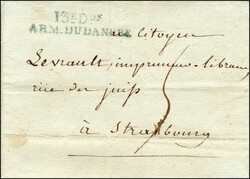 13e Don
ARM. DU DANUBE
au Citoyen
Levrault, imprimeur-libraire
rue des juifs
à Strasbourg
5